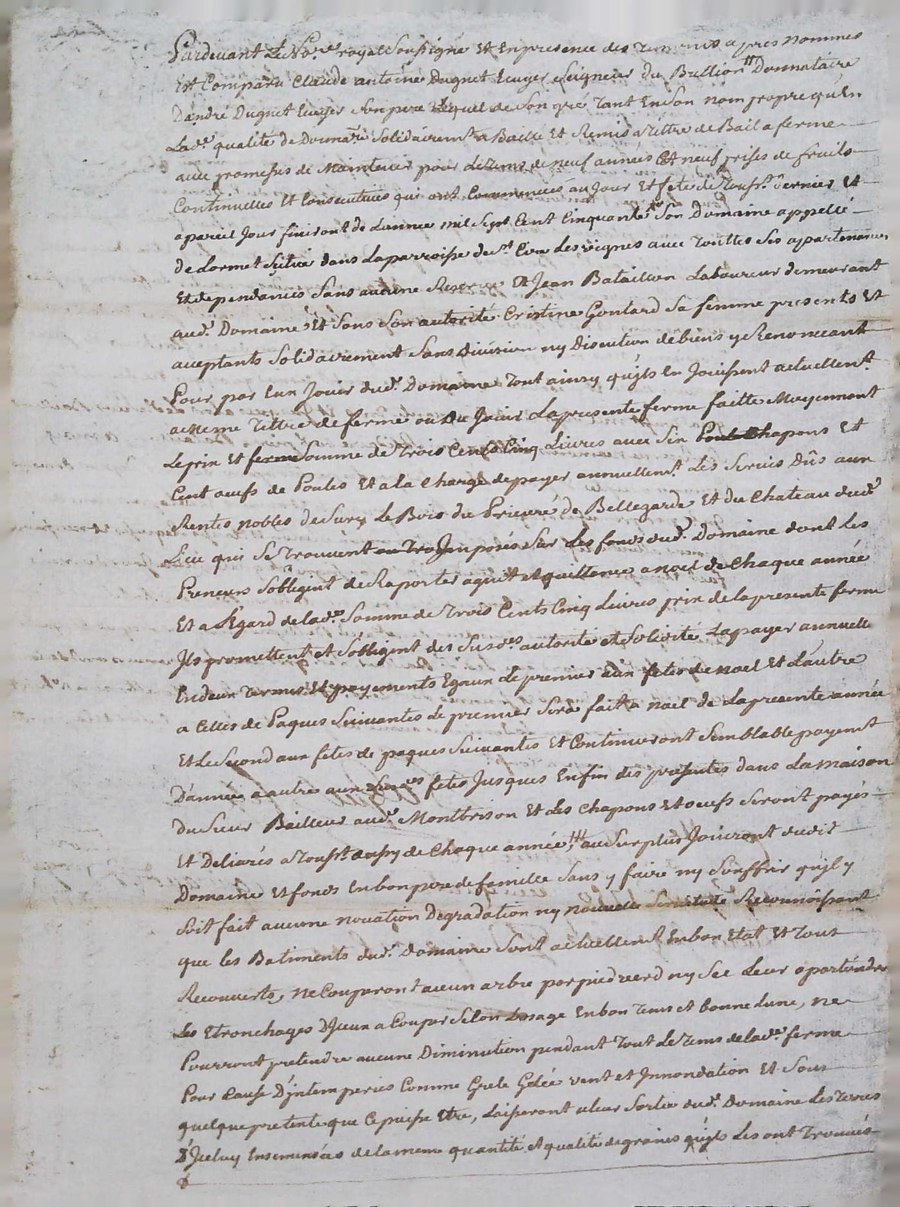 Pardevant Le No.re royal Soussigné Et En presence des Temoins apres nommes
Est Comparu Claude antoine Duguet Ecuyer Seigneur du Bullion Donnataire
D'andré Duguet Ecuyer Son pere Lequel de Son gré Tant En Son nom propre qu'En
La d.e qualité de Donnat.re Solidairem.t a Baillé Et Remis a Tittre de Bail a ferme
avec promesses de Maintenir pour Le Tems de neuf années Et neuf prises de fruits
Continuelles Et Consecutives qui ont Commencées au Jour Et fete de Touss.ts dernier Et
a pareil Jour finiront de L'année mil Sept Cent Cinquante Son Domaine appellé
de Lormet Scitué dans La parroisse de S.t Cire Les vignes avec Touttes Ses apartenances
Et dependances Sans aucune Reserve Et Jean Bataillon Laboureur demeurant
aud. Domaine Et Sous Son autorité Cristine Goulard Sa femme presents Et
acceptants Solidairement Sans Division ny Discution de biens y Renonceant
Pour par Eux Jouir dud. Domaine Tout ainsy qu'jls En Jouissent actuellem.t
a meme Tittre de ferme ou du Jouir La presente ferme faitte Moyennant
Le prix Et Somme de Trois Cents Cinq Livres avec Six Chapons Et
Cent oeufs de Poules Et a La Charge de payer annuellem.t Les Servis Dûs aux
Rentes nobles de Sury Le Bois du Prieuré de Bellegarde Et du Chateau dud.
Lieu qui Se Trouvent Jmposés Sur Les fonds dud. Domaine dont Les
Preneurs S'obligent de Raporter aquit et quittance a noel de Chaque année
Et a L'Egard de la d.e Somme de Trois Cents Cinq Livres prix de La presente ferme
Jls promettent et S'obligent des Susd.es autorité et Solidité La payer annuelle
En deux Termes Et payements Egaux Le premier aux fetes de noel Et L'autre
a Celles de Paques Suivantes Le premier Sera fait a noel de La presente année
Et Le Second aux fetes de paques Suivantes Et Continueront Semblable payem.t
D'année a autre aux Susd.es fetes Jusques Enfin des presentes dans La maison
du Sieur Bailleur aud. Montbrison Et Les Chapons Et oeufs Seront payés
Et Delivrés a Touss.t aussy de Chaque année au Surplus Jouiront dudit
Domaine Et fonds En bon pere de famille Sans y faire ny Souffrir qu'jl y
Soit fait aucune novation Degradation ny nouvelle Servitude Reconnoissant
que les Batiments dud. Domaine Sont actuellem.t En bon Etat Et Tout
Recouverts, ne Couperont aucun arbre par pied verd ny Sec Leur apartiendra
Les Etronchages d'Jceux a Couper Selon L'usage En bon Tems et bonne Lune, ne
Pourront pretendre aucune Diminution pendant Tout Le Tems de la d.e ferme
Pour Cause D'jntemperies Comme Grele Gelée vent et Jnnondation Et Sous
quelque pretexte que Ce puisse Etre, Laisseront a Leur Sortie dud. Domaine Les Terres
D'Jceluy Ensemencées de la meme quantité et qualité de graines qu'jls Les ont Trouvées